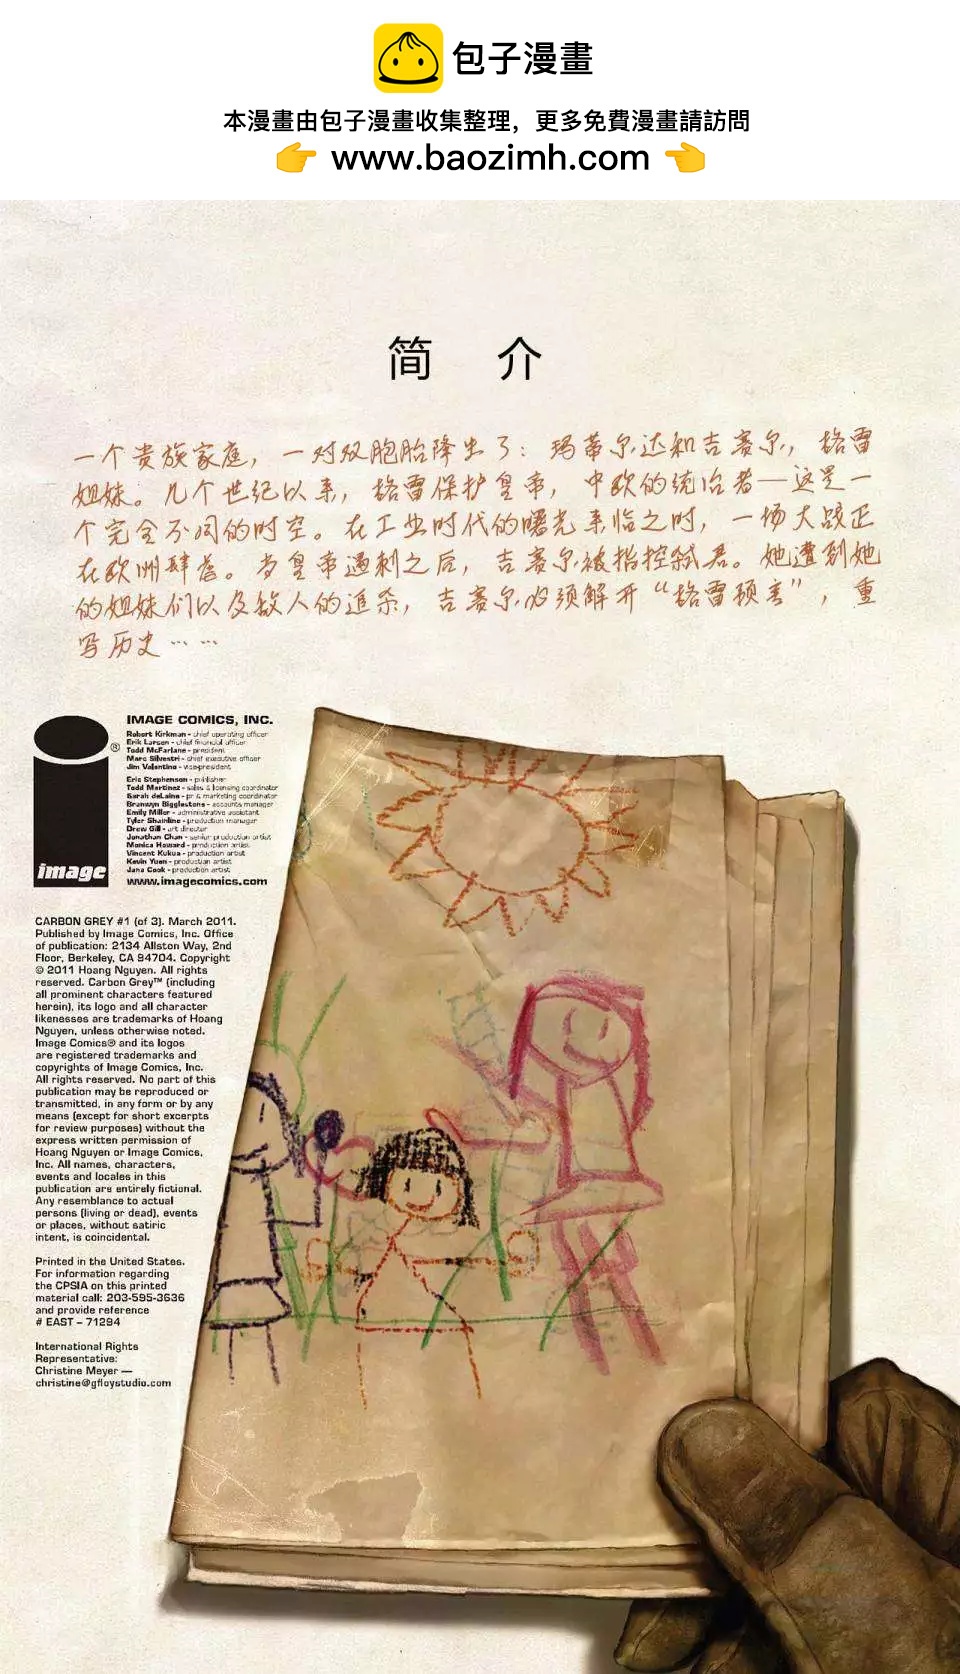 包子漫畫
本漫畫由包子漫畫收集整理，更多免費漫畫請訪問
www.baozimh.com
简 介
一个贵族家庭，一对双胞胎降生了：玛蒂尔达和吉赛尔，格雷
姐妹。几个世纪以来，格雷保护皇帝，中欧的统治者—这是一
个完全不同的时空。在工业时代的曙光来临之时，一场大战正
在欧洲肆虐。当皇帝遇刺之后，吉赛尔被指控弑君。她遭到她
的姐妹们以及敌人的追杀，吉赛尔必须解开“格雷预言”，重
写历史……
IMAGE COMICS, INC.
Robert Kirkman - chief operating officer
Erik Larsen - chief financial officer
Todd McFarlane - president
Marc Silvestri - chief executive officer
Jim Valentino - vice-president
Eric Stephenson - publisher
Todd Martinez - sales & licensing coordinator
Sarah deLaine - pr & marketing coordinator
Branwyn Bigglestone - accounts manager
Emily Miller - administrative assistant
Tyler Shainline - production manager
Drew Gill - art director
Jonathan Chan - senior production artist
Monica Howard - production artist
Vincent Kukua - production artist
Kevin Yuen - production artist
Jana Cook - production artist
www.imagecomics.com
image
®
CARBON GREY #1 (of 3). March 2011.
Published by Image Comics, Inc. Office
of publication: 2134 Allston Way, 2nd
Floor, Berkeley, CA 94704. Copyright
© 2011 Hoang Nguyen. All rights
reserved. Carbon Grey™ (including
all prominent characters featured
herein), its logo and all character
likenesses are trademarks of Hoang
Nguyen, unless otherwise noted.
Image Comics® and its logos
are registered trademarks and
copyrights of Image Comics, Inc.
All rights reserved. No part of this
publication may be reproduced or
transmitted, in any form or by any
means (except for short excerpts
for review purposes) without the
express written permission of
Hoang Nguyen or Image Comics,
Inc. All names, characters,
events and locales in this
publication are entirely fictional.
Any resemblance to actual
persons (living or dead), events
or places, without satiric
intent, is coincidental.
Printed in the United States.
For information regarding
the CPSIA on this printed
material call: 203-595-3636
and provide reference
# EAST – 71294
International Rights
Representative:
Christine Meyer —
christine@gfloystudio.com